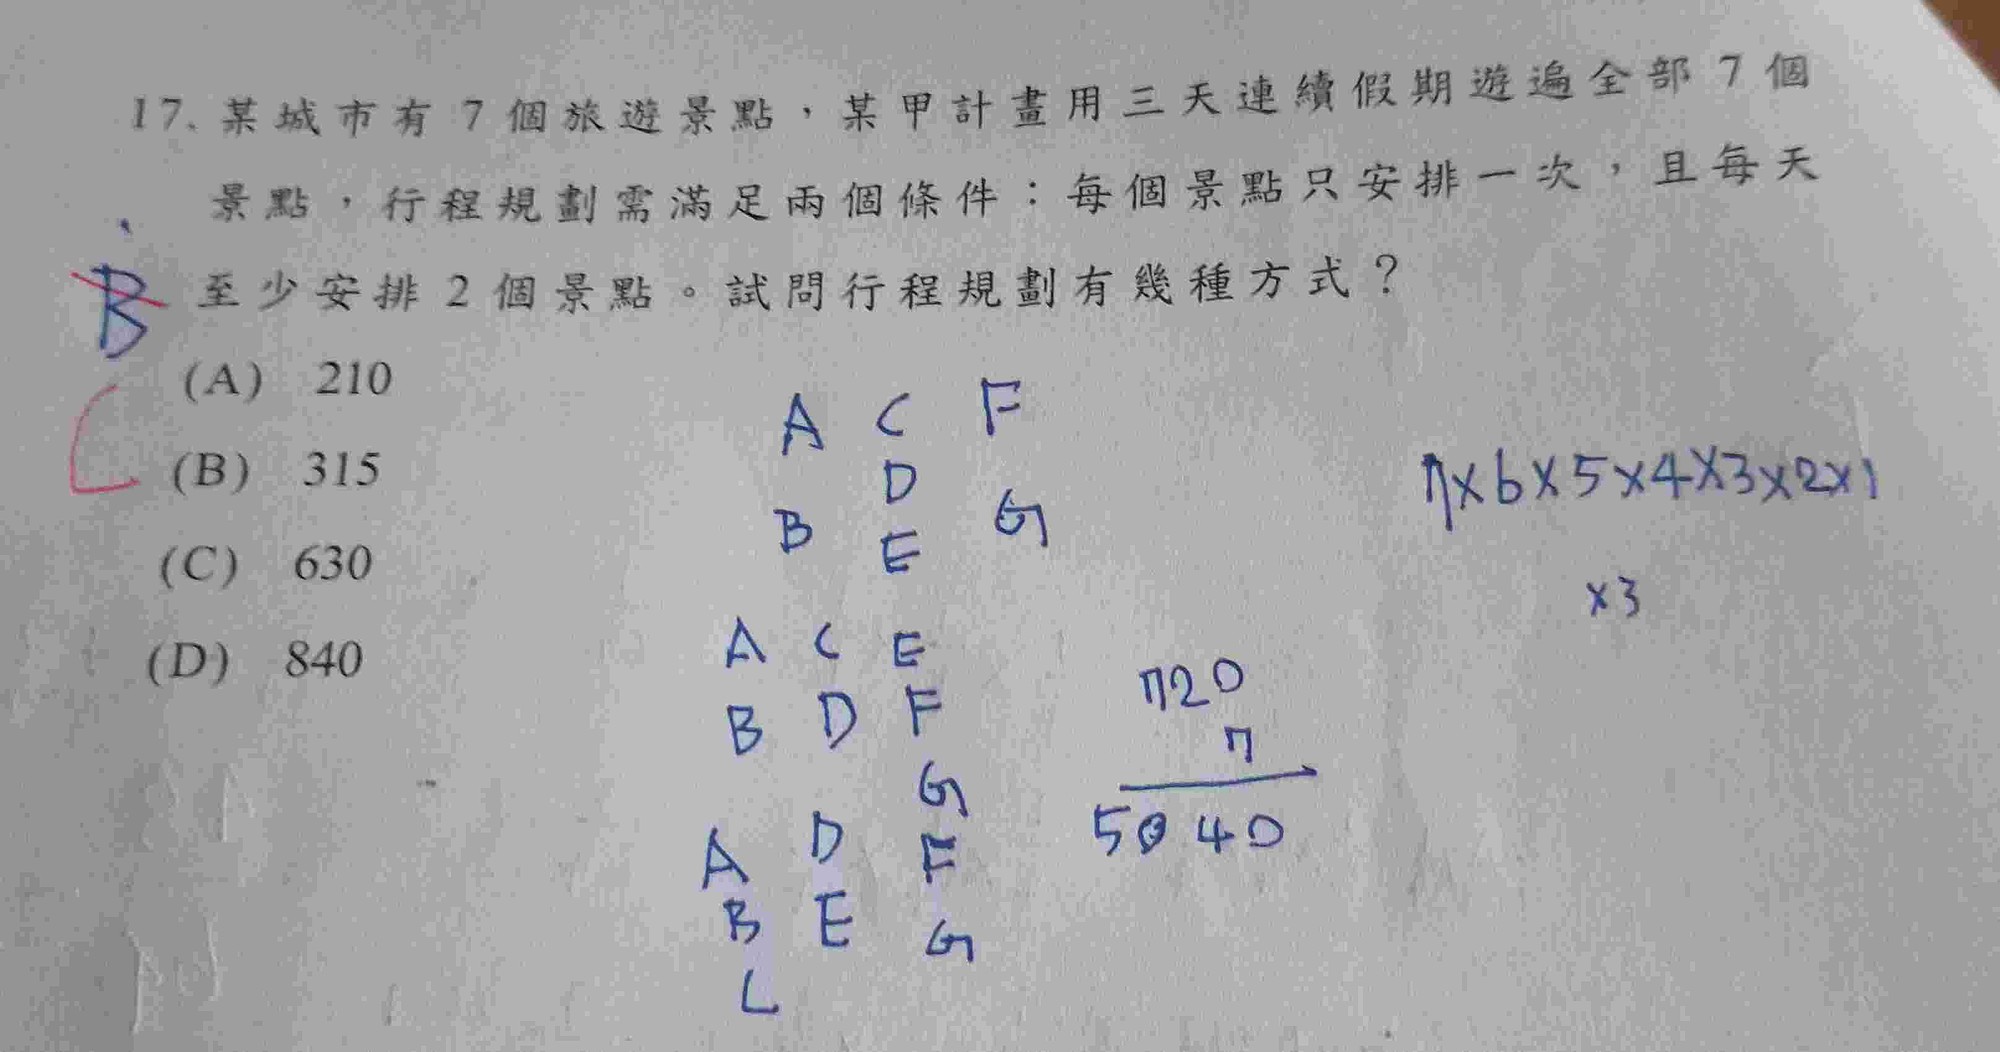 17. 某城市有 7 個旅遊景點，某甲計畫用三天連續假期遊遍全部 7 個
景點，行程規劃需滿足兩個條件：每個景點只安排一次，且每天
至少安排 2 個景點。試問行程規劃有幾種方式？
B
(A) 210
C
(B) 315
(C) 630
(D) 840
A C F
D
B E G
7×6×5×4×3×2×1
×3
A C E
B D F
G
720
7
5040
A D F
B E G
C